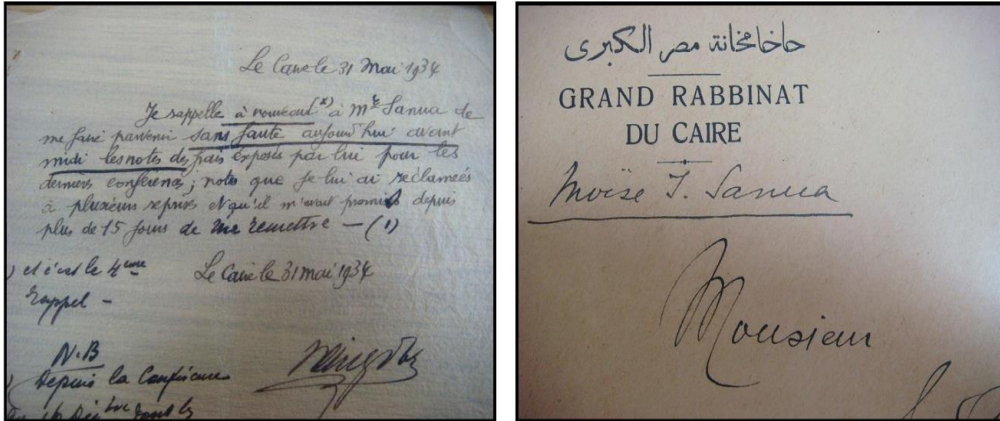 Le Caire le 31 Mai 1934
Je rappelle à nouveau (x) à Mr Sanua de
me faire parvenir sans faute aujourd'hui avant
midi les notes des frais exposés par lui pour les
dernières conférences ; notes que je lui ai réclamées
à plusieurs reprises et qu'il m'avait promis depuis
plus de 15 jours de me remettre — (1)
) et c'est le 4eme
rappel —
Le Caire le 31 mai 1934
N.B
Depuis la Conférence
حاخامخانة مصر الكبرى
GRAND RABBINAT
DU CAIRE
Moïse I. Sanua
Monsieur